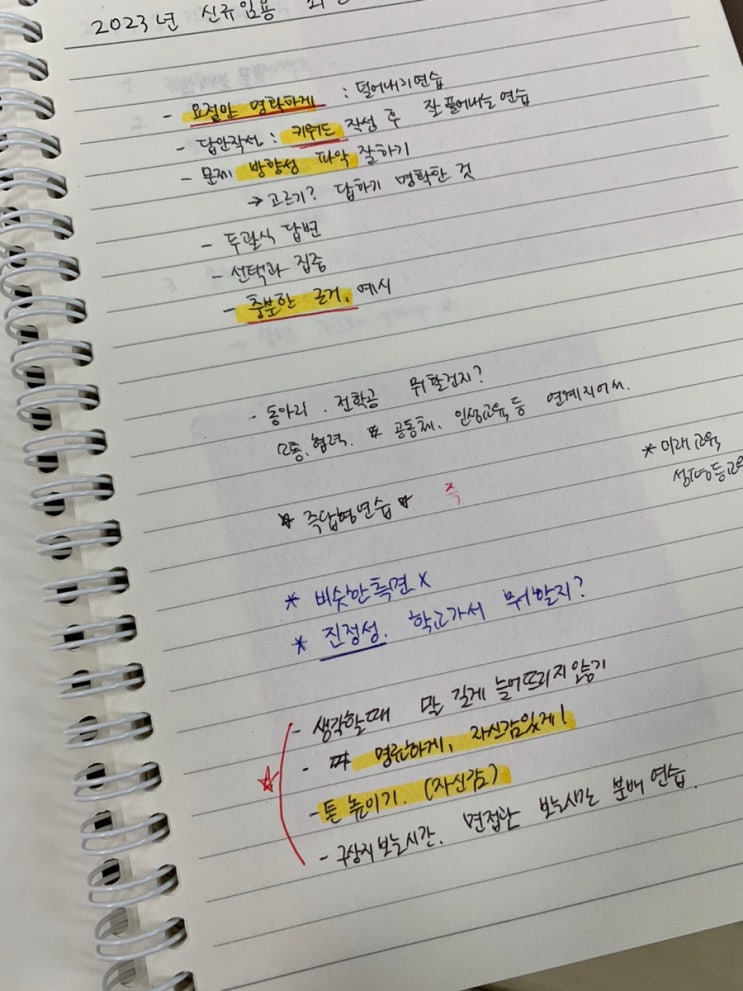 2023년 신규임용
- 요점만 명확하게 : 덜어내기연습
- 답안작성 : 키워드 작성 후 잘 풀어내는 연습
- 문제 방향성 파악 잘하기
→ 고르기? 답하기 명확한 것
- 두괄식 답변
- 선택과 집중
- 충분한 근거, 예시
- 동아리, 전학공 뭐할건지?
소통, 협력, 공동체, 인성교육 등 연계지어서.
* 미래교육
* 즉답형연습 *
즉
* 비슷한측면 X
* 진정성. 학교가서 뭐할지?
- 생각할때 말 길게 늘어뜨리지않기
- 명료하게, 자신감있게!
- 톤 높이기. (자신감)
- 구상지 보는시간, 면접관 보는시간 분배 연습.